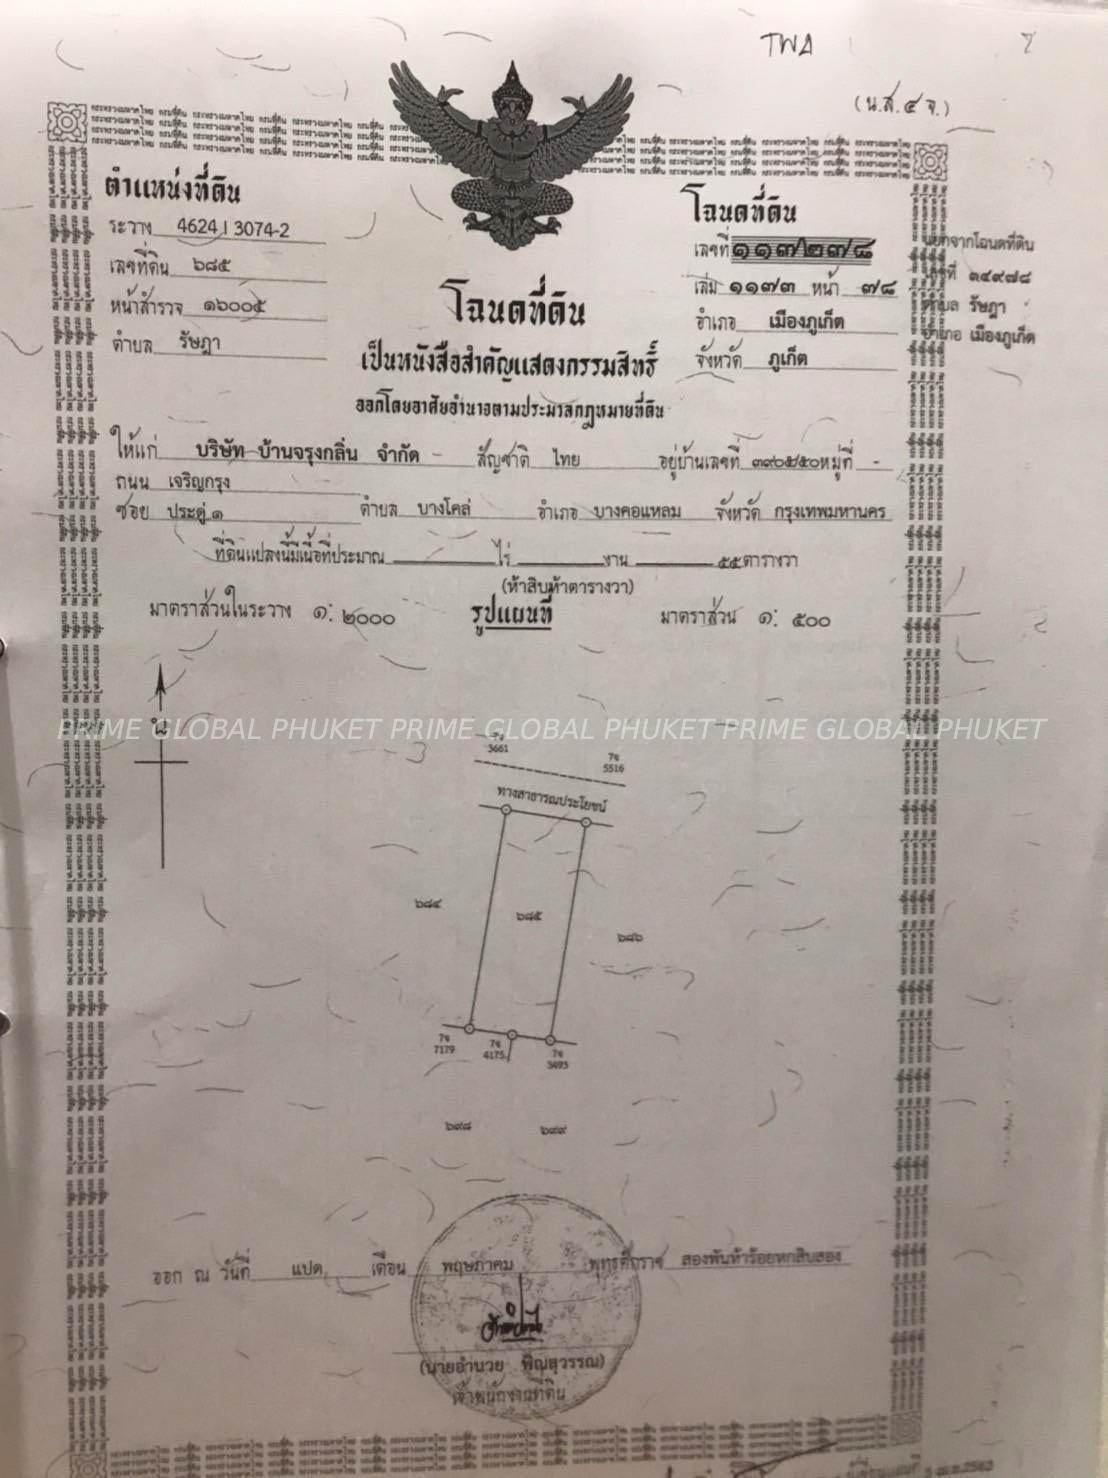 TWA
(น.ส.๔ จ.)
ตำแหน่งที่ดิน
ระวาง 4624 I 3074-2
เลขที่ดิน ๖๘๕
หน้าสำรวจ ๑๖๐๐๕
ตำบล รัษฎา
โฉนดที่ดิน
เลขที่ ๑๑๗๒๗๘
เล่ม ๑๑๗๓ หน้า ๗๘
อำเภอ เมืองภูเก็ต
จังหวัด ภูเก็ต
แยกจากโฉนดที่ดิน
เลขที่ ๑๔๙๗๘
ตำบล รัษฎา
อำเภอ เมืองภูเก็ต
โฉนดที่ดิน
เป็นหนังสือสำคัญแสดงกรรมสิทธิ์
ออกโดยอาศัยอำนาจตามประมวลกฎหมายที่ดิน
ให้แก่ บริษัท บ้านจรุงกลิ่น จำกัด - สัญชาติ ไทย อยู่บ้านเลขที่ หมู่ที่ -
ถนน เจริญกรุง
ซอย ประดู่ ๑ ตำบล บางโคล่ อำเภอ บางคอแหลม จังหวัด กรุงเทพมหานคร
ที่ดินแปลงนี้มีเนื้อที่ประมาณ ไร่ งาน ๕๕ ตารางวา
(ห้าสิบห้าตารางวา)
มาตราส่วนในระวาง ๑: ๒๐๐๐ รูปแผนที่ มาตราส่วน ๑: ๕๐๐
น
PRIME GLOBAL PHUKET PRIME GLOBAL PHUKET PRIME GLOBAL PHUKET
7จ 3661
7จ 5516
ทางสาธารณประโยชน์
๖๘๔
๖๘๕
๖๘๖
7จ 7179
7จ 4175
7จ 3493
๖๙๘
๖๙๙
ออก ณ วันที่ แปด เดือน พฤษภาคม พุทธศักราช สองพันห้าร้อยหกสิบสอง
(นายอำนวย พิณสุวรรณ)
เจ้าพนักงานที่ดิน